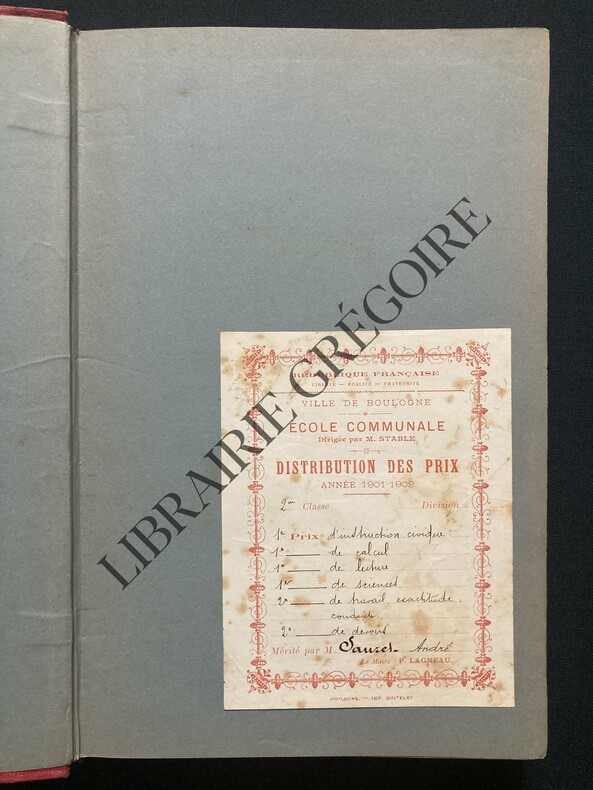 LIBRAIRIE GRÉGOIRE
RÉPUBLIQUE FRANÇAISE
LIBERTÉ — ÉGALITÉ — FRATERNITÉ
VILLE DE BOULOGNE
ÉCOLE COMMUNALE
Dirigée par M. STABLE
DISTRIBUTION DES PRIX
ANNÉE 1901-1902
2me Classe Division
1er Prix d'instruction civique
1er de calcul
1er de lecture
1er de sciences
2e de travail, exactitude,
conduite
2e de devoirs
Mérité par M. Sauzet André
Le Maire : P. LAGNEAU.
BOULOGNE. — IMP.